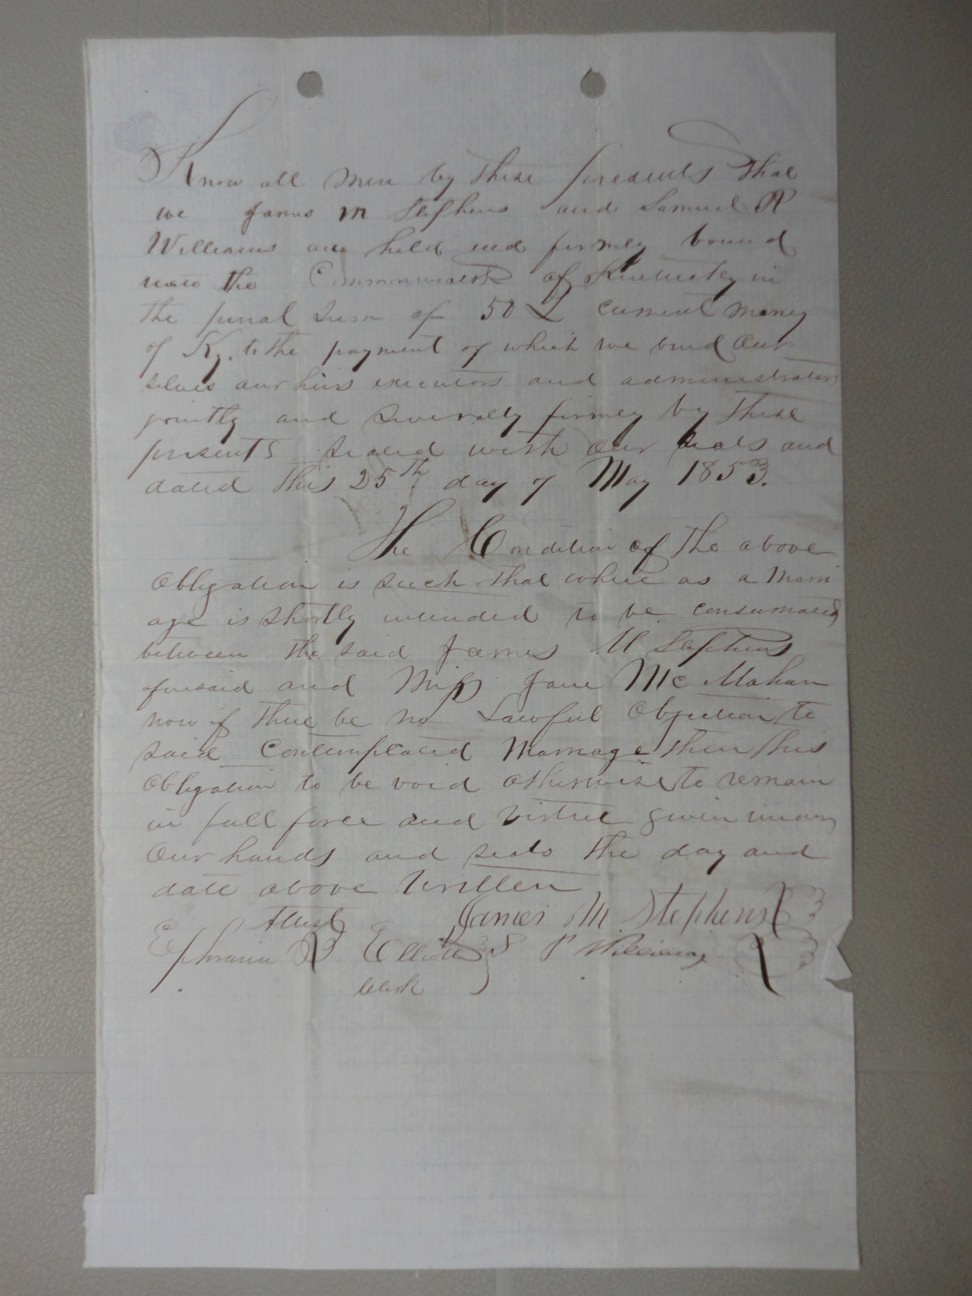 Know all men by these presents that
we James M Stephens and Samuel P
Williams are held and firmly bound
unto the Commonwealth of Kentucky in
the penal sum of 50 L current money
of Ky. to the payment of which we bind our
selves our heirs executors and administrators
jointly and severally firmly by these
presents sealed with our seals and
dated this 25th day of May 1853.
The Condition of the above
Obligation is such that where as a Marri
age is shortly intended to be consumated
between the said James M Stephens
foresaid and Miss Jane McMahan
now if there be no Lawful Objection to
said Contemplated Marriage then this
Obligation to be void otherwise to remain
in full force and virtue given under
Our hands and seals the day and
date above Written
Attest James M Stephens
Ephraim B Elliott S P Williams
clerk